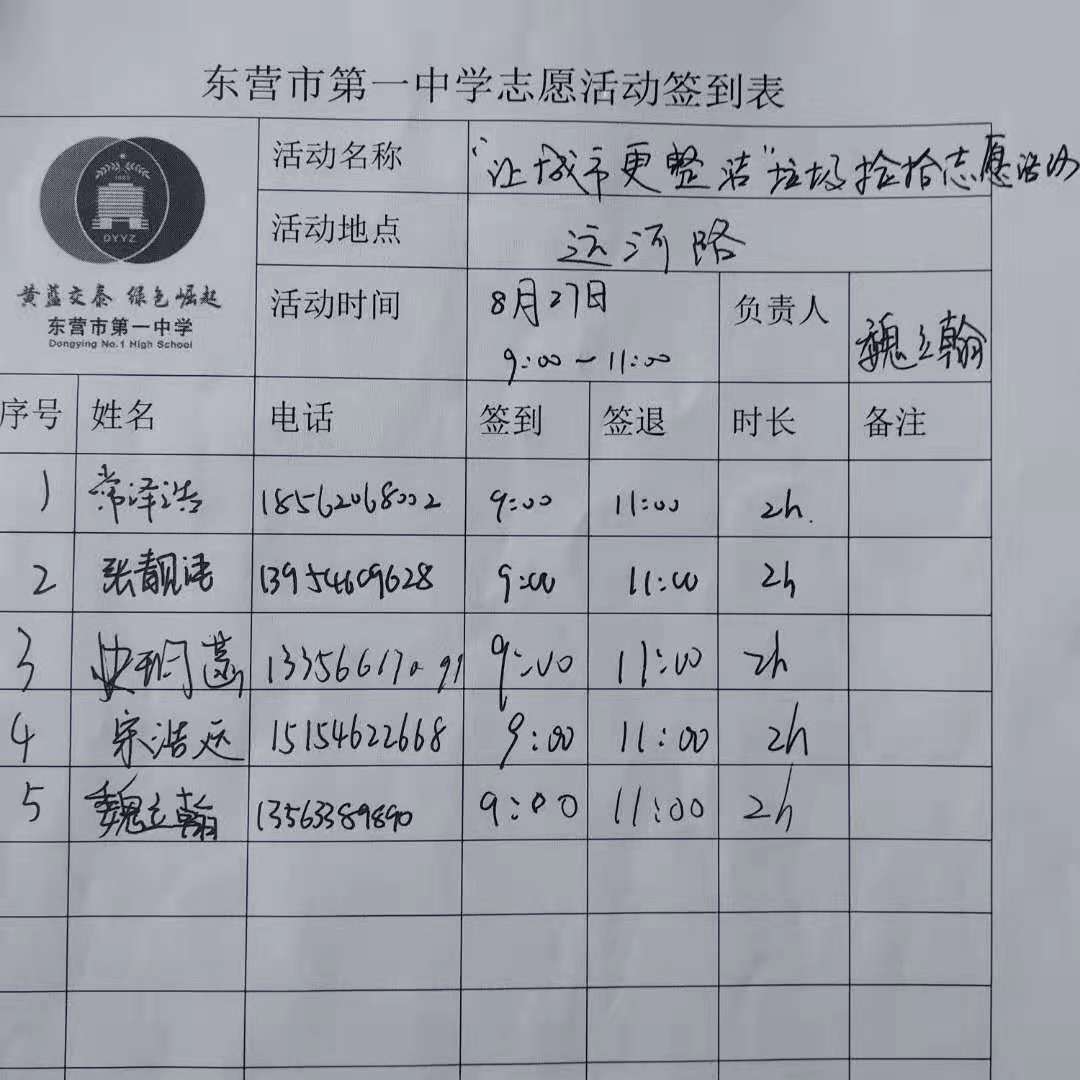 东营市第一中学志愿活动签到表
活动名称 "让城市更整洁"垃圾捡拾志愿活动
活动地点 运河路
DYYZ
黄蓝交泰 绿色崛起
东营市第一中学
Dongying No.1 High School
活动时间 8月27日 负责人 魏立翰
9:00-11:00
序号 姓名 电话 签到 签退 时长 备注
1 常泽浩 18562068002 9:00 11:00 2h.
2 张靓 13954609628 9:00 11:00 2h
3 9:00 11:00 2h
4 宋浩廷 15154622668 9:00 11:00 2h
5 魏立翰 13563389890 9:00 11:00 2h